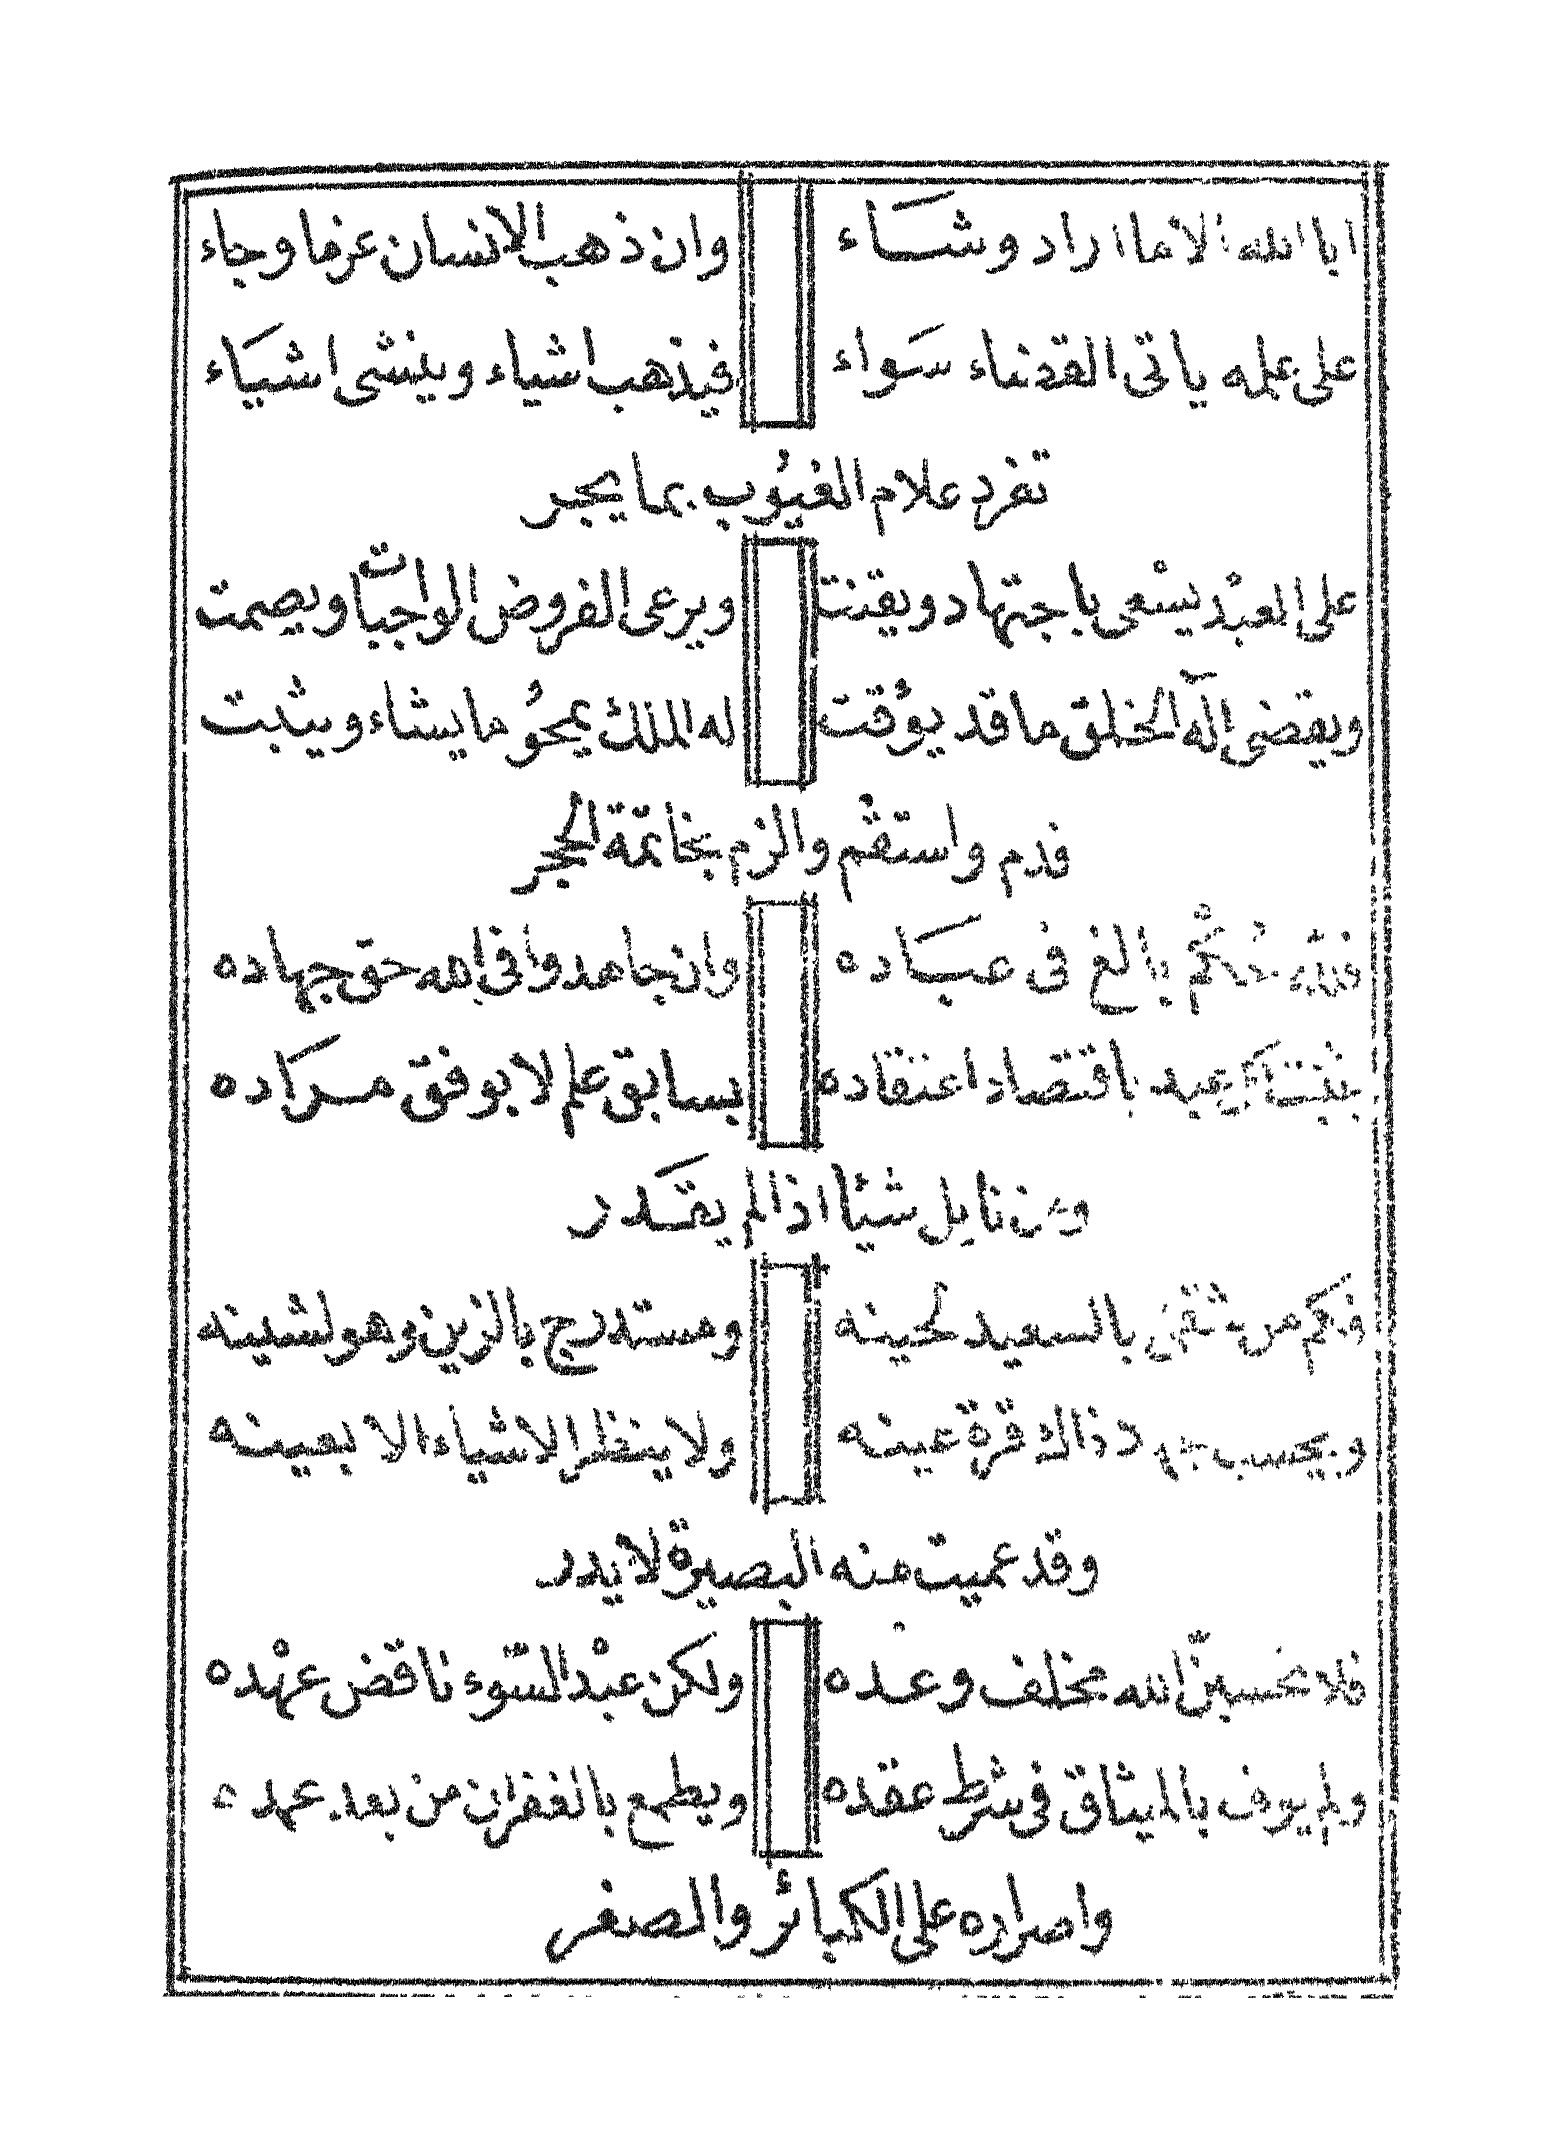 ابا الله الا ما اراد وشاء وان ذهب الانسان عزما وجاء
على علمه ياتى القضاء سَواء فيذهب اشياء وينشى اشيَاء
تفرد علام الغيُوب بما يجبر
على العبْد يسْعى باجتهاد ويقنت ويرعى الفروض الواجبات ويصمت
ويقضى اله الخلق ما قد يوُقت له الملك يمحوُ ما يشاء ويثْبت
فدم واستقْم والزم بخاتمة الحجر
فلله حُكْم بالغ فى عبَاده وان جاهدوا فى الله حق جهاده
يثْبت العبد باقتصاد اعتقاده بسابق علم لا بوفق مرَاده
ومن نايل شيئا اذا لم يقَدر
فكم من شقى بالسعيد لحينه ومستدرج بالزين وهو لشينه
ويحسب ذاك قرة عينه ولا ينظر الاشياء الا بعينه
وقد عميت منه البصيرة لا يدر
فلا تحسبنّ الله مخلف وعده ولكن عبْد السّوء ناقض عهْده
ولم يوف بالميثاق فى شرط عقده ويطمع بالغفران من بعد عمده
واصراره على الكبائر والصغر